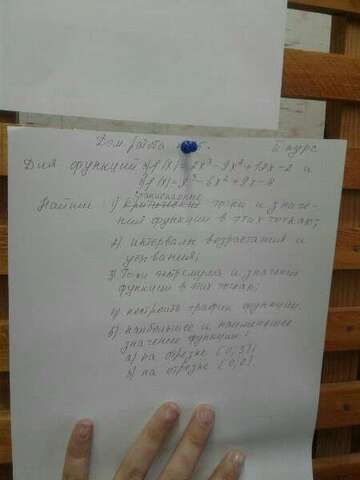 Дом. работа
II курс
Для функций а) f(x)=2x³-9x²+12x-2 и
б) f(x)=x³-6x²+9x-4
стационарные
Найти: 1) точки и значе-
ния функции в этих точках;
2) интервалы возрастания и
убывания;
3) Точки экстремума и значения
функции в этих точках;
4) построить график функции.
5) наибольшее и наименьшее
значение функции:
а) на отрезке [0;3];
б) на отрезке [0;2]